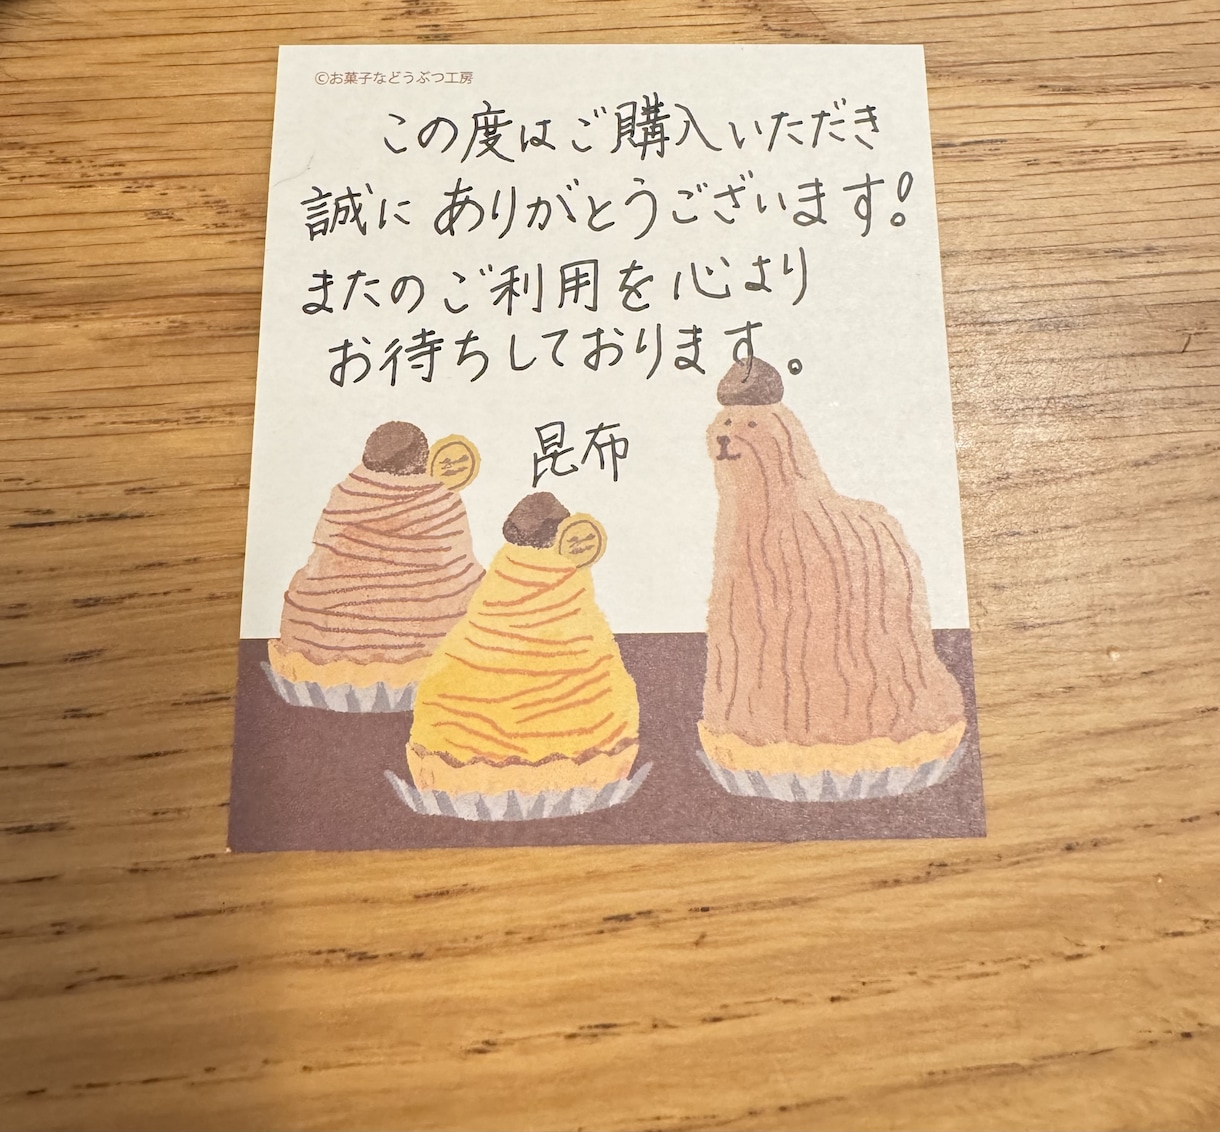 ©お菓子などうぶつ工房
この度はご購入いただき
誠にありがとうございます!
またのご利用を心より
お待ちしております。
昆布